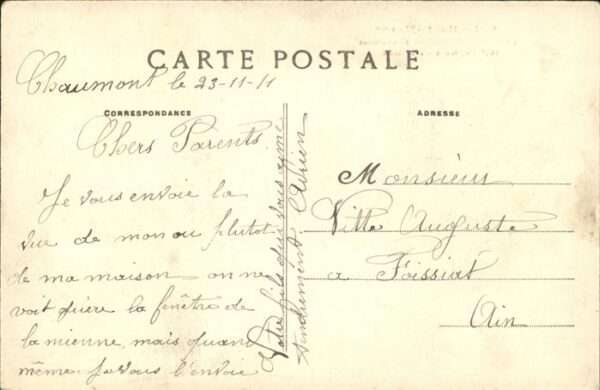 CARTE POSTALE
Chaumont le 23-11-11
CORRESPONDANCE
ADRESSE
Chers Parents
Je vous envoie la
vue de mon ou plutot
de ma maison on ne
voit guère la fenêtre de
la mienne mais quand
même je vous l'envoie
Votre fils qui vous aime
tendrement Adrien
Monsieur
Villa Auguste
a Foissiat
Ain